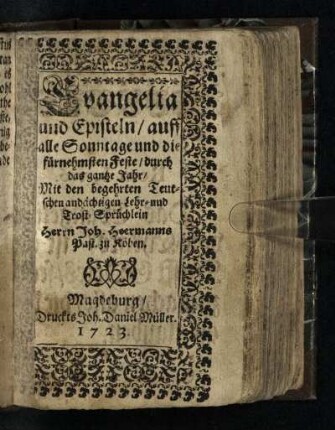 Evangelia
und Episteln / auff
alle Sonntage und di-
fürnehmsten Feste / durch
das gantze Jahr /
Mit den begehrten Teut-
schen andächtigen Lehr- und
Trost-Sprüchlein
Herrn Joh. Heermanns
Past. zu Köben.
Magdeburg /
Druckts Joh. Daniel Müller.
1723.